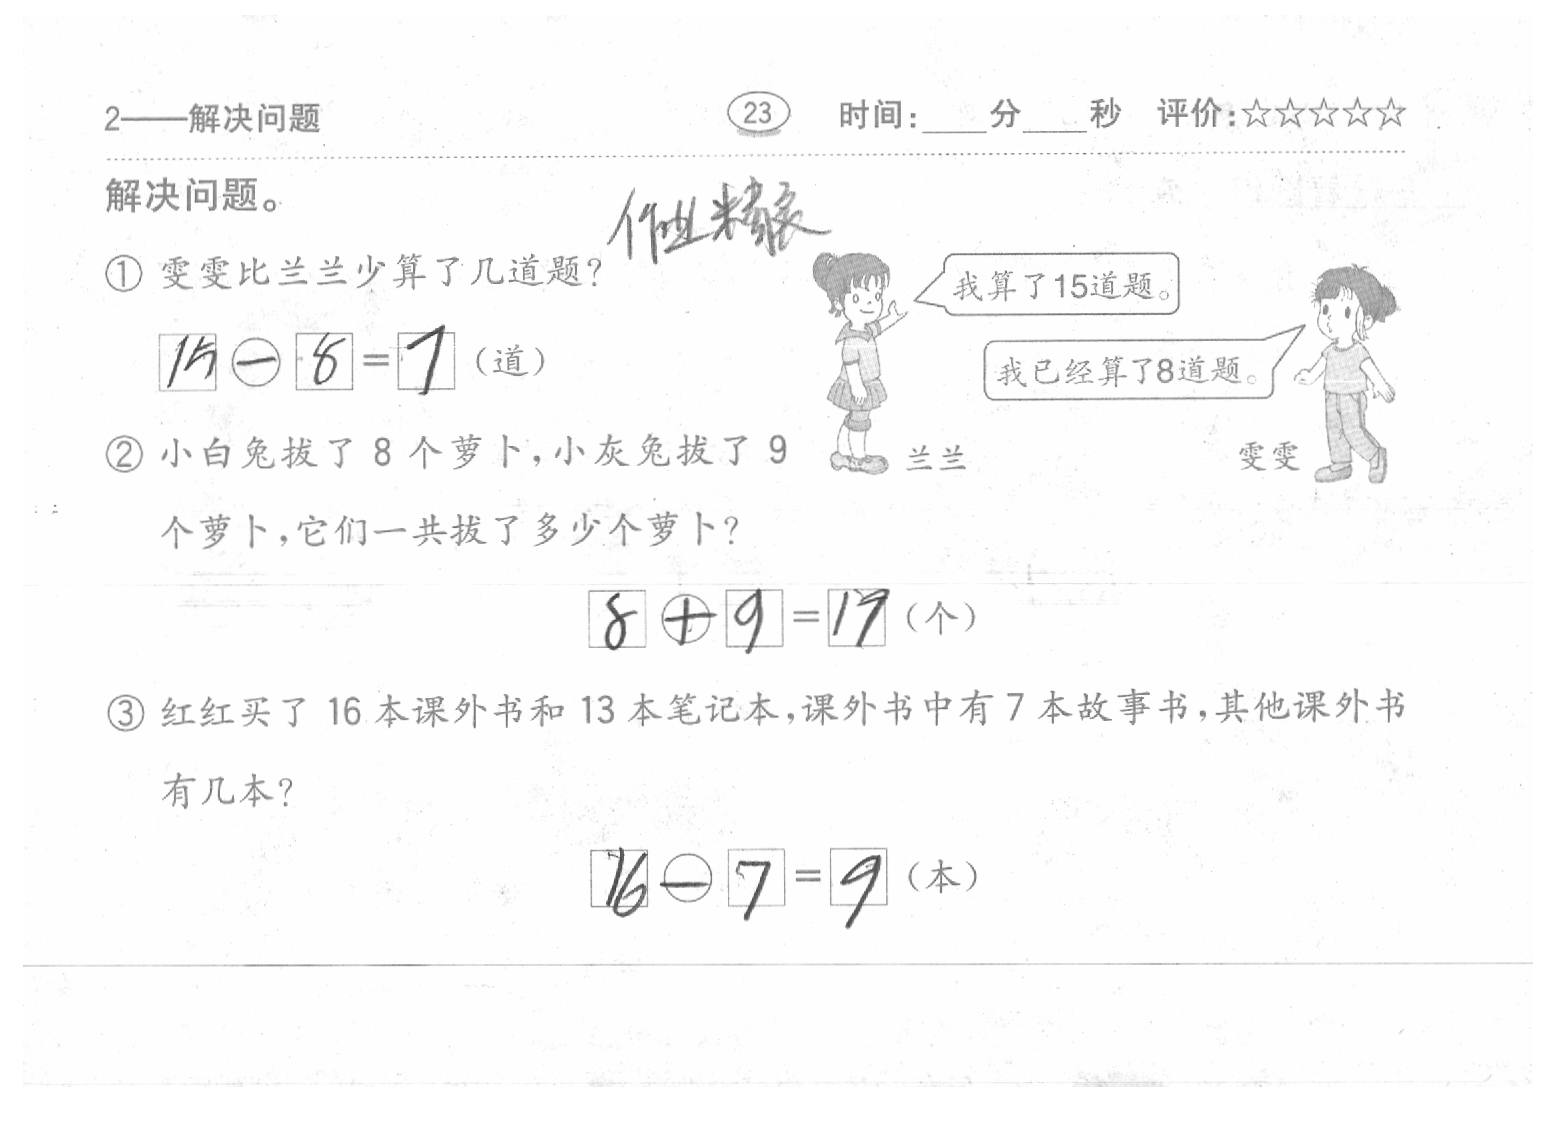 2——解决问题 23 时间:____分____秒 评价:☆☆☆☆☆
解决问题。
作业精灵
① 雯雯比兰兰少算了几道题?
15 - 8 = 7 (道)
我算了15道题。
我已经算了8道题。
兰兰 雯雯
② 小白兔拔了 8 个萝卜,小灰兔拔了 9
个萝卜,它们一共拔了多少个萝卜?
8 + 9 = 17 (个)
③ 红红买了 16 本课外书和 13 本笔记本,课外书中有 7 本故事书,其他课外书
有几本?
16 - 7 = 9 (本)